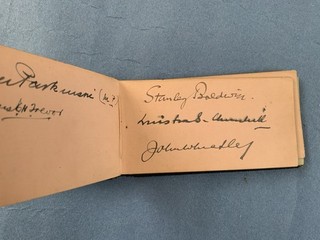 Parkinson (M.P
Trevor
Stanley Baldwin.
Winston S. Churchill
John Wheatley